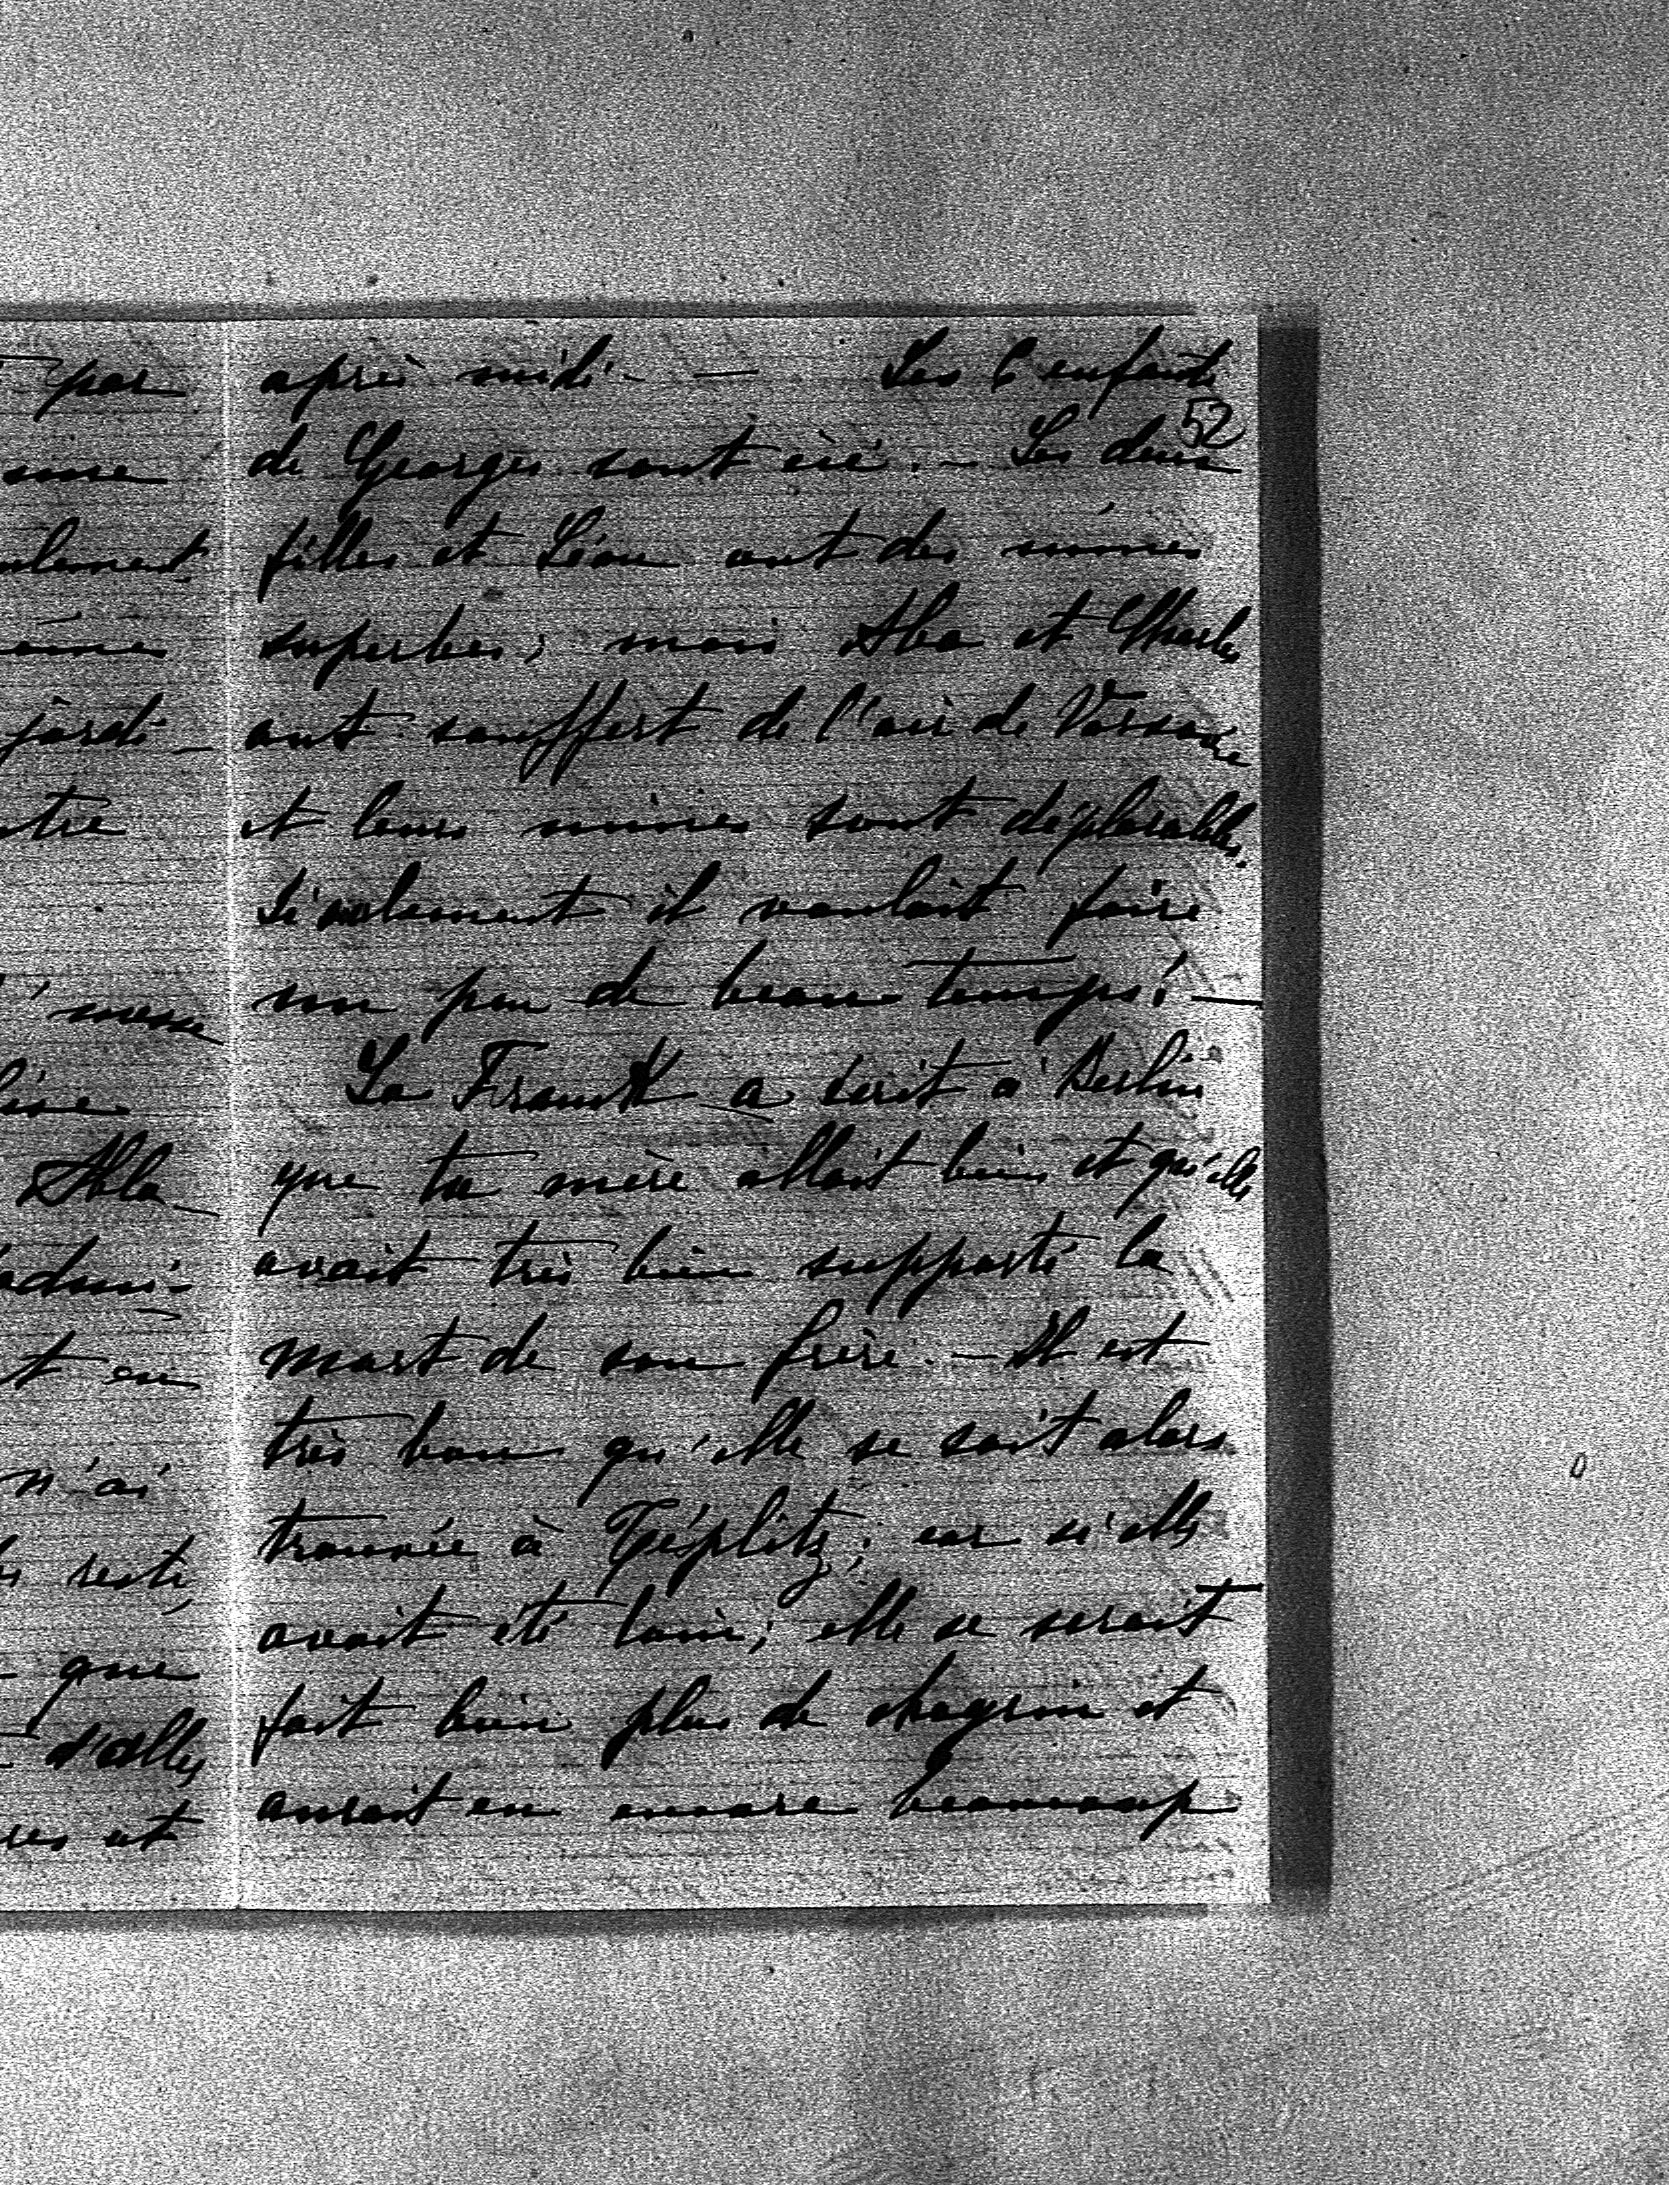 par
après midi - — Les 6 enfants
52
de Georges sont ici. - Les deux
filles et Léon ont des mines
superbes; mais Aba et Charles
ont souffert de l'air de Varsovie
et leurs mines sont déplorables.
Seulement il voulait faire
un peu de beau temps! —
La Franck a écrit à Berlin
que ta mère allait bien et qu'elle
avait très bien supporté la
mort de son frère. - Il est
très bon qu'elle se soit alors
trouvée à Téplitz; car si elle
avait été loin; elle se serait
fait bien plus de chagrin et
aurait eu encore beaucoup
jardi-
tre
Aba
t en
n'ai
reste,
que
d'elle
et